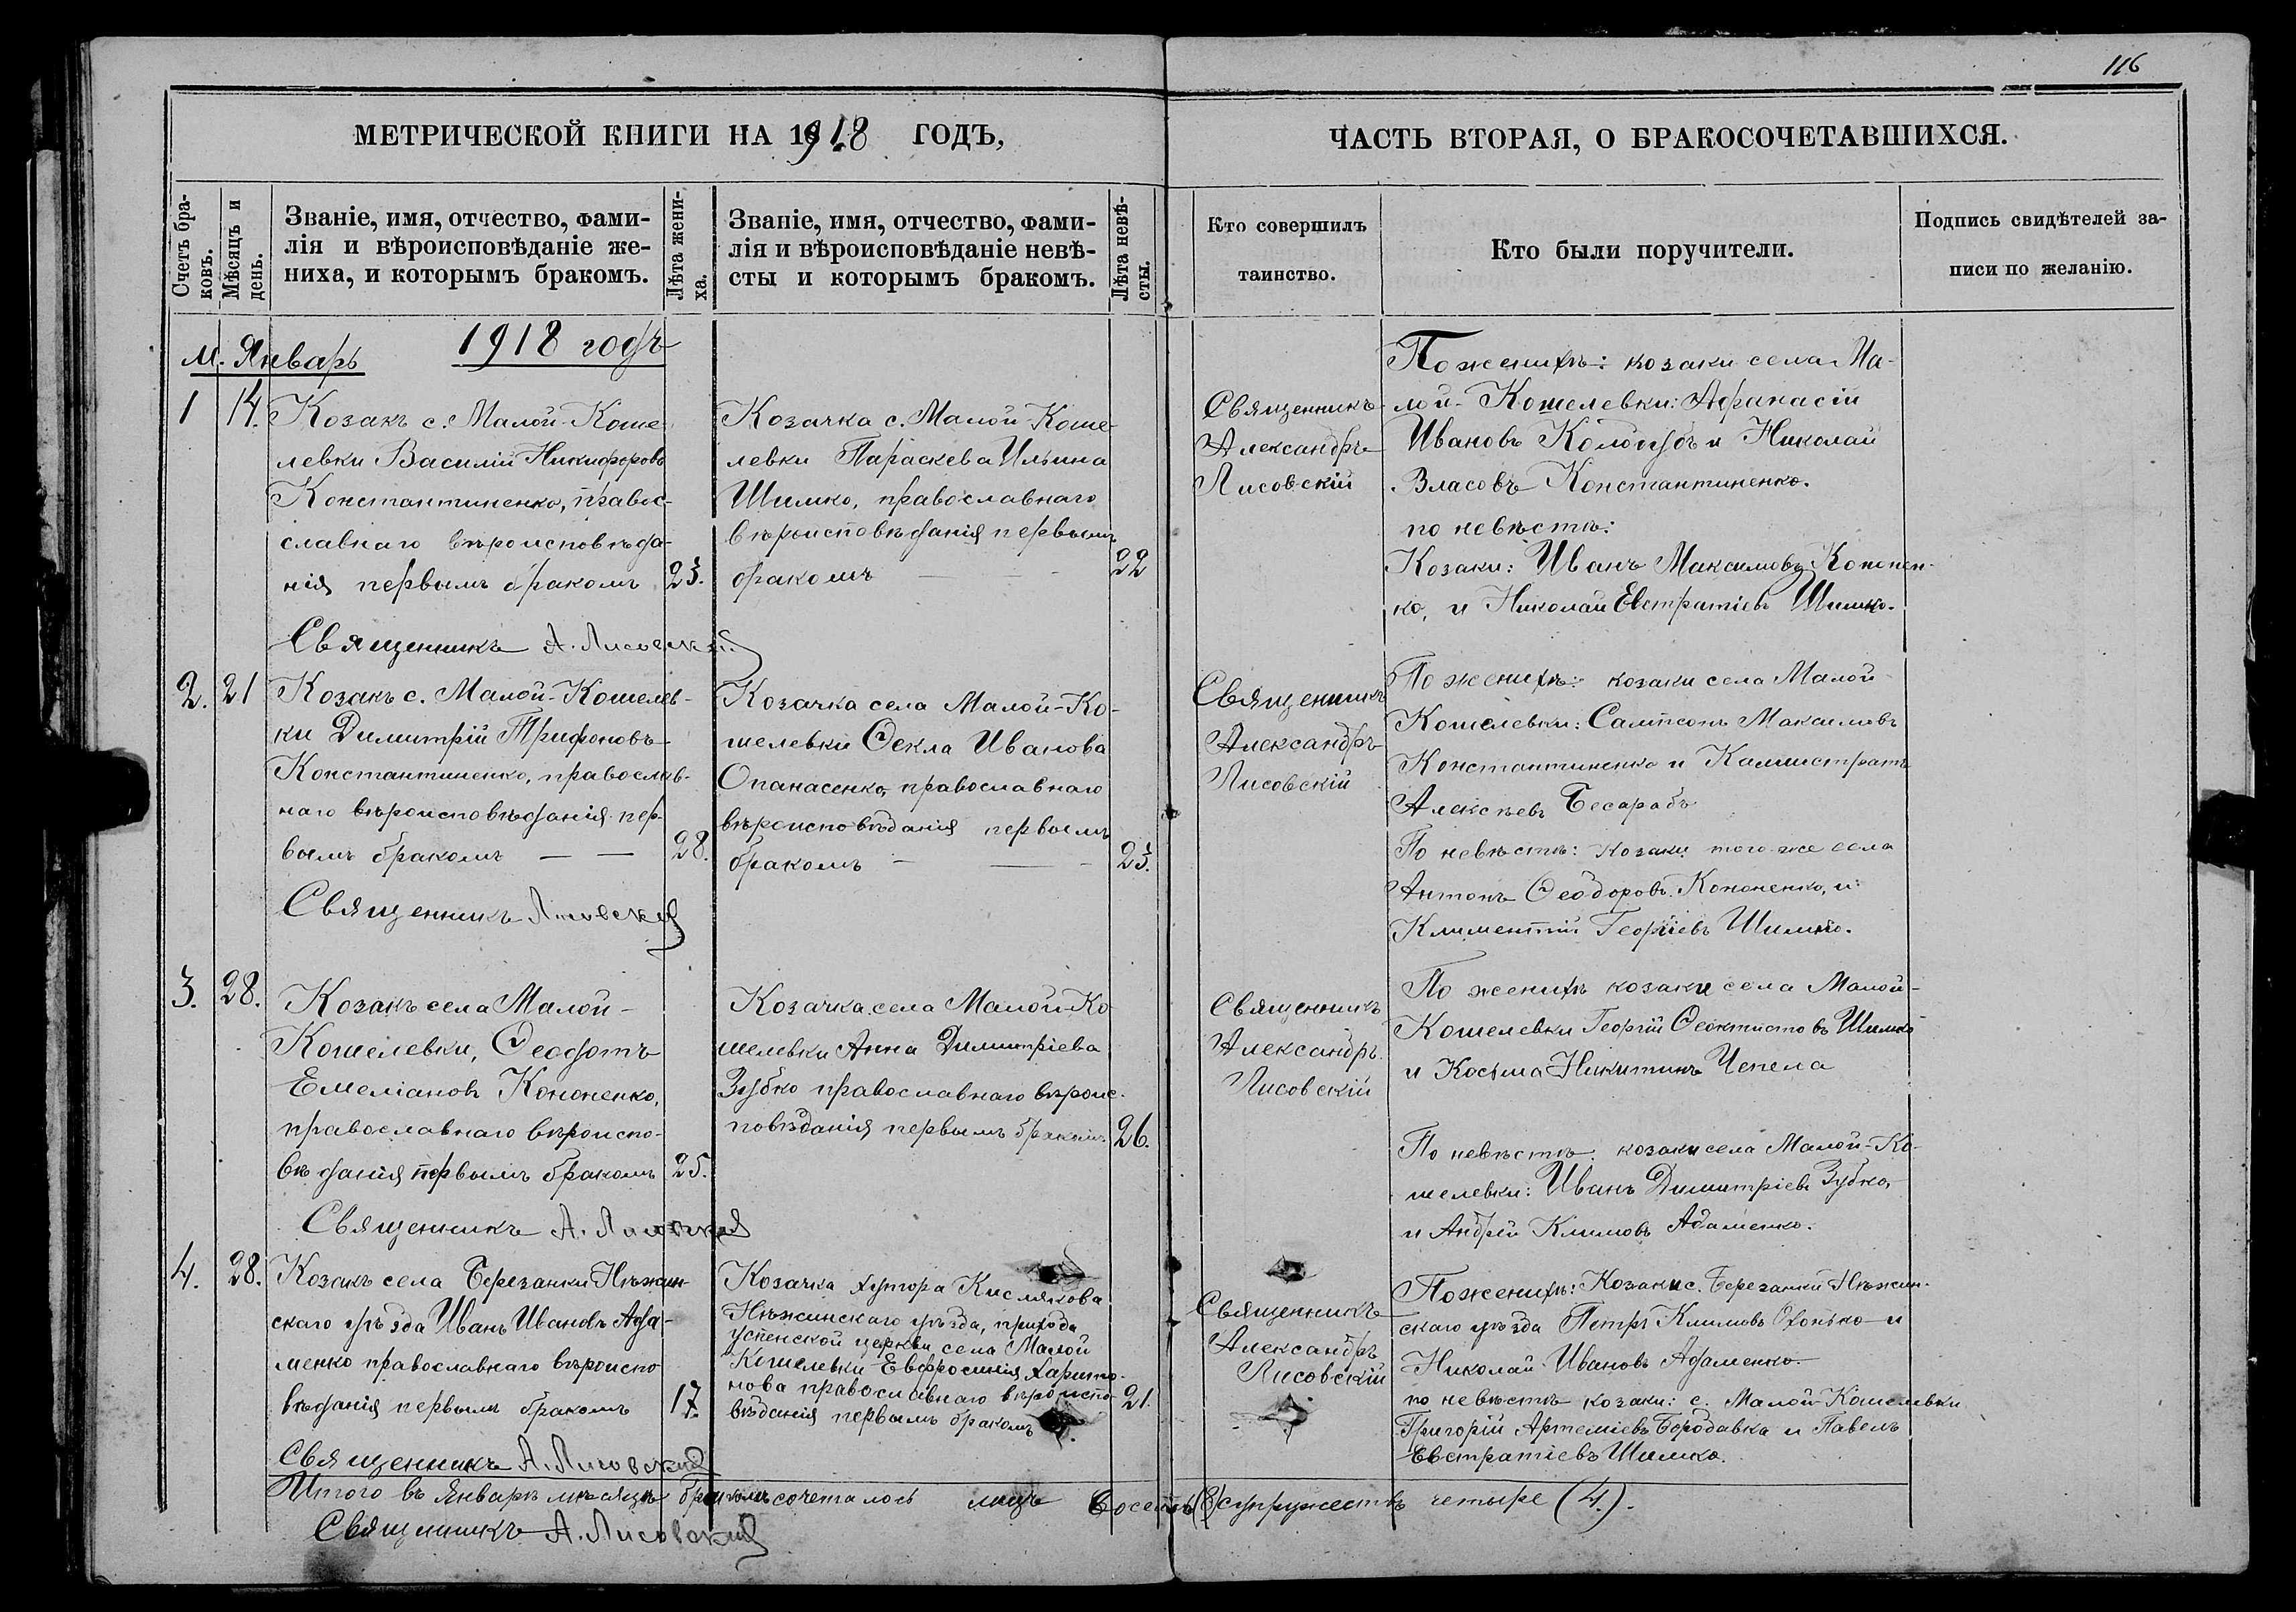 116
МЕТРИЧЕСКОЙ КНИГИ НА 1918 ГОДЪ,
ЧАСТЬ ВТОРАЯ, О БРАКОСОЧЕТАВШИХСЯ.
Счетъ бра-
ковъ.
Мѣсяцъ и
день.
Званіе, имя, отчество, фами-
лія и вѣроисповѣданіе же-
ниха, и которымъ бракомъ.
Лѣта жени-
ха.
Званіе, имя, отчество, фами-
лія и вѣроисповѣданіе невѣ-
сты и которымъ бракомъ.
Лѣта невѣ-
сты.
Кто совершилъ
таинство.
Кто были поручители.
Подпись свидѣтелей за-
писи по желанію.
1918 годъ
м. Январь
1
14.
Козакъ с. Малой-Коше-
левки Василій Никифоровъ
Константиненко, правос-
славнаго вѣроисповѣда-
нія первымъ бракомъ
23.
Козачка с. Малой Коше-
левки Параскева Ильина
Шимко, православнаго
вѣроисповѣданія первымъ
бракомъ
22
Священникъ
Александръ
Лисовскій
По женихѣ: козаки села Ма-
лой-Кошелевки: Афанасій
Ивановъ и Николай
Власовъ Константиненко.
по невѣстѣ:
Козаки: Иванъ Максимовъ Кононен-
ко, и Николай Евстратіевъ Шимко.
Священникъ А. Лисовскій
2.
21
Козакъ с. Малой-Кошелев-
ки Димитрій Трифоновъ
Константиненко, православ-
наго вѣроисповѣданія пер-
вымъ бракомъ — —
28.
Козачка села Малой-Ко-
шелевки Ѳекла Иванова
Опанасенко, православнаго
вѣроисповѣданія первымъ
бракомъ — — -
23.
Священникъ
Александръ
Лисовскій
По женихѣ: козаки села Малой
Кошелевки: Сампсонъ Максимовъ
Константиненко и Каллистратъ
Алексѣевъ Бесарабъ
По невѣстѣ: козаки того-же села
Антонъ Ѳеодоровъ Кононенко, и
Климентій Георгіевъ Шимко.
Священникъ Лисовскій
3.
28.
Козакъ села Малой-
Кошелевки, Ѳеодотъ
Емеліановъ Кононенко,
православнаго вѣроиспо-
вѣданія первымъ бракомъ
25.
Козачка села Малой-Ко
шелевки Анна Димитріева
Зубко православнаго вѣроис-
повѣданія первымъ бракомъ.
26.
Священникъ
Александръ
Лисовскій
По женихѣ козаки села Малой-
Кошелевки Георгій Ѳеоктистовъ Шимко
и Косьма Никитинъ Чепела
По невѣстѣ: козаки села Малой-Ко-
шелевки: Иванъ Димитріевъ Зубко,
и Андрей Климовъ Адаменко.
Священникъ А. Лисовскій
4.
28.
Козакъ села Березанки Нѣжин-
скаго уѣзда Иванъ Ивановъ Ада-
менко православнаго вѣроиспо
вѣданія первымъ бракомъ
17.
Козачка хутора Кислякова
Нѣжинскаго уѣзда, прихода
Успенской церкви села Малой
Кошелевки Евфросинія Харито-
нова православнаго вѣроиспо-
вѣданія первымъ бракомъ
21.
Священникъ
Александръ
Лисовскій
По женихѣ: Козаки с. Березанки Нѣжин-
скаго уѣзда Петръ Климовъ Охонько и
Николай Ивановъ Адаменко.
по невѣстѣ козаки: с. Малой-Кошелевки
Григорій Артеміевъ Бородавка и Павелъ
Евстратіевъ Шимко.
Священникъ А. Лисовскій
Итого въ Январѣ мѣсяцѣ бракомъ сочеталось лицъ восемь (8) супружествъ четыре (4).
Священникъ А. Лисовскій